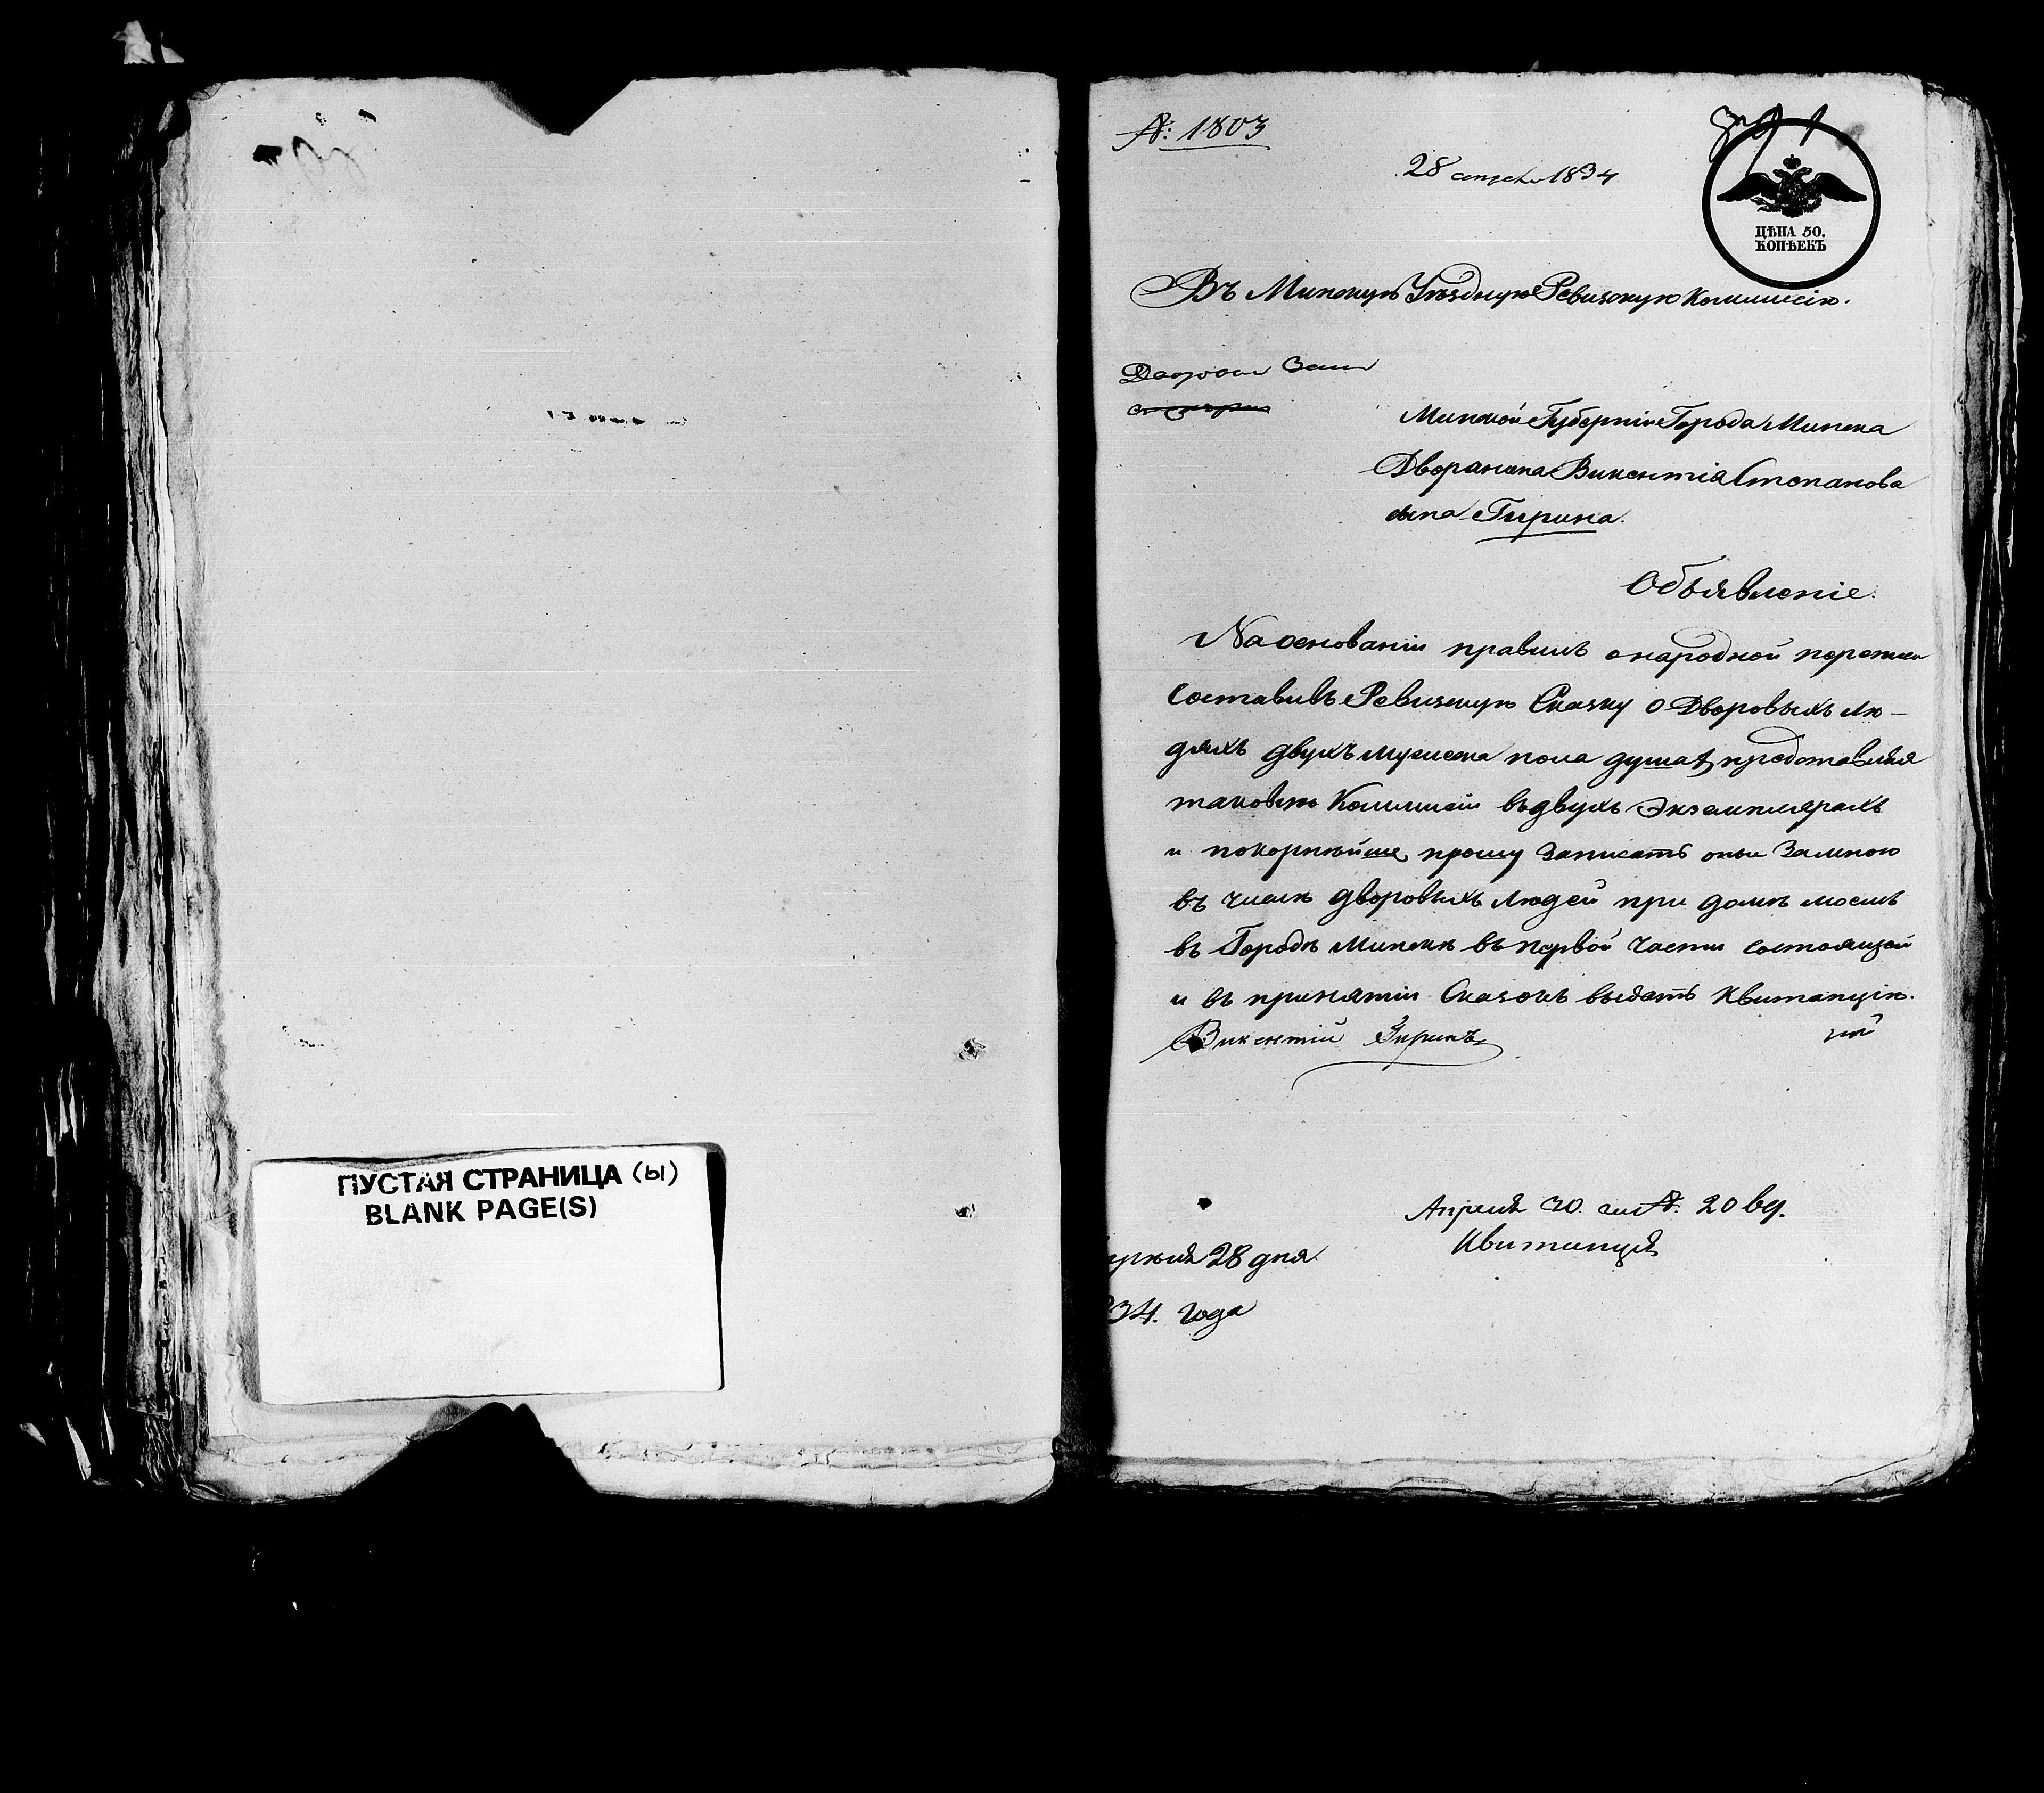 ПУСТАЯ СТРАНИЦА (ы)
BLANK PAGE(S)
№: 1803
28 1834
ЦѢНА 50.
КОПѢЕКЪ
Въ Минскую Уѣздную Ревизскую Коммисію.
Минской Губерніи Города Минска
Дворянина Викентія Степанова
сына Гирина.
Объявленіе.
На основаніи правилъ о народной переписи
Составивъ Ревизскую Сказку о Дворовыхъ лю-
дяхъ двухъ мужеска пола душахъ представляя
таковую Коммисіи въ двухъ экземплярахъ
и покорнѣйше прошу записать оныя за мною
въ числѣ дворовыхъ людей при домѣ моемъ
въ Городѣ Минскѣ въ первой части состоящей
и въ принятіи Сказокъ выдать Квитанцію.
Викентій Гиринъ
Апреля 30. №. 20 вд.
Квитанція
28 дня
34. года